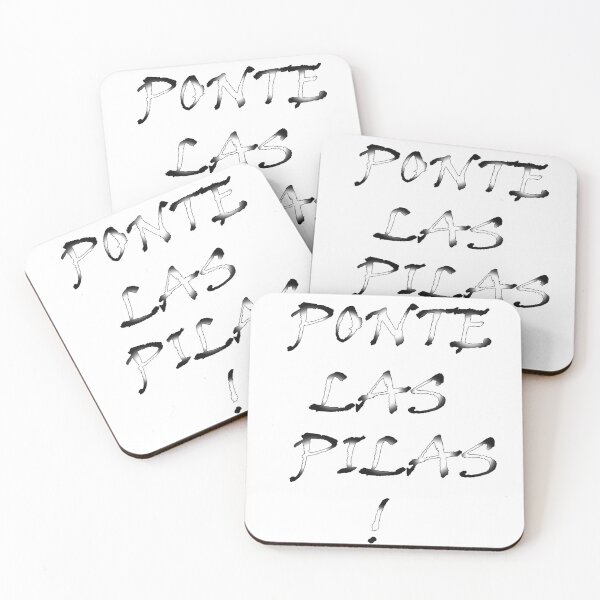 PONTE
LAS
PONTE
LAS
PILAS
PONTE
LAS
PILAS
!
PONTE
LAS
PILAS
!